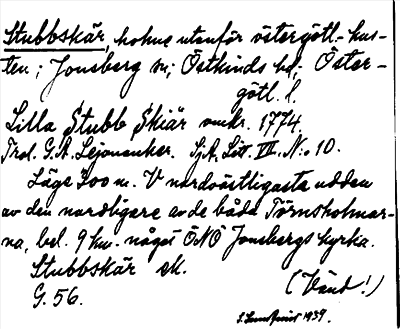 Stubbskär, holme utanför östergötl.-kus-
ten; Jonsberg sn; Östkinds hd; Öster-
götl. l.
Lilla Stubb Skiär omkr. 1774.
Trol. G.A. Lejonanker. SjA, Litt. III. N:o 10.
Läge 300 m. V nordvästligaste udden
av den nordligare av de båda Törnsholmar-
na, bel. 9 km. något ÖNÖ Jonsbergs kyrka.
Stubbskär ek.
G. 56.
(Vänd!)
1939.